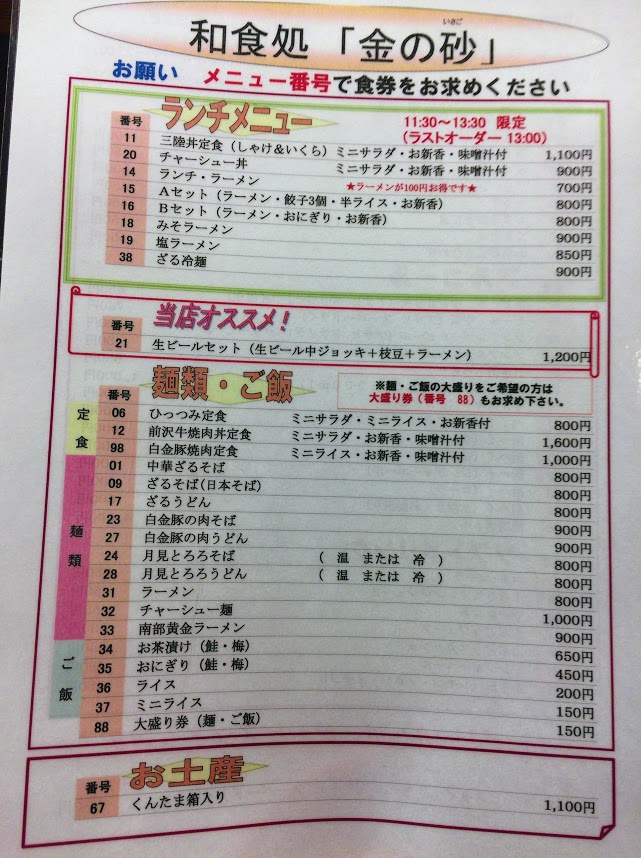 いさご
和食処「金の砂」
お願い メニュー番号で食券をお求めください
番号 ランチメニュー 11:30～13:30 限定
(ラストオーダー 13:00)
11 三陸丼定食（しゃけ＆いくら） ミニサラダ・お新香・味噌汁付 1,100円
20 チャーシュー丼 ミニサラダ・お新香・味噌汁付 900円
14 ランチ・ラーメン ★ラーメンが100円お得です★ 700円
15 Ａセット（ラーメン・餃子3個・半ライス・お新香） 800円
16 Ｂセット（ラーメン・おにぎり・お新香） 800円
18 みそラーメン 900円
19 塩ラーメン 850円
38 ざる冷麺 900円
番号 当店オススメ！
21 生ビールセット（生ビール中ジョッキ＋枝豆＋ラーメン） 1,200円
番号 麺類・ご飯 ※麺・ご飯の大盛りをご希望の方は
大盛り券（番号 88）もお求め下さい。
定食
06 ひっつみ定食 ミニサラダ・ミニライス・お新香付 800円
12 前沢牛焼肉丼定食 ミニサラダ・お新香・味噌汁付 1,600円
98 白金豚焼肉定食 ミニライス・お新香・味噌汁付 1,000円
麺類
01 中華ざるそば 800円
09 ざるそば(日本そば) 800円
17 ざるうどん 800円
23 白金豚の肉そば 900円
27 白金豚の肉うどん 900円
24 月見とろろそば （ 温 または 冷 ） 800円
28 月見とろろうどん （ 温 または 冷 ） 800円
31 ラーメン 800円
32 チャーシュー麺 1,000円
33 南部黄金ラーメン 900円
ご飯
34 お茶漬け（鮭・梅） 650円
35 おにぎり（鮭・梅） 450円
36 ライス 200円
37 ミニライス 150円
88 大盛り券（麺・ご飯） 150円
番号 お土産
67 くんたま箱入り 1,100円